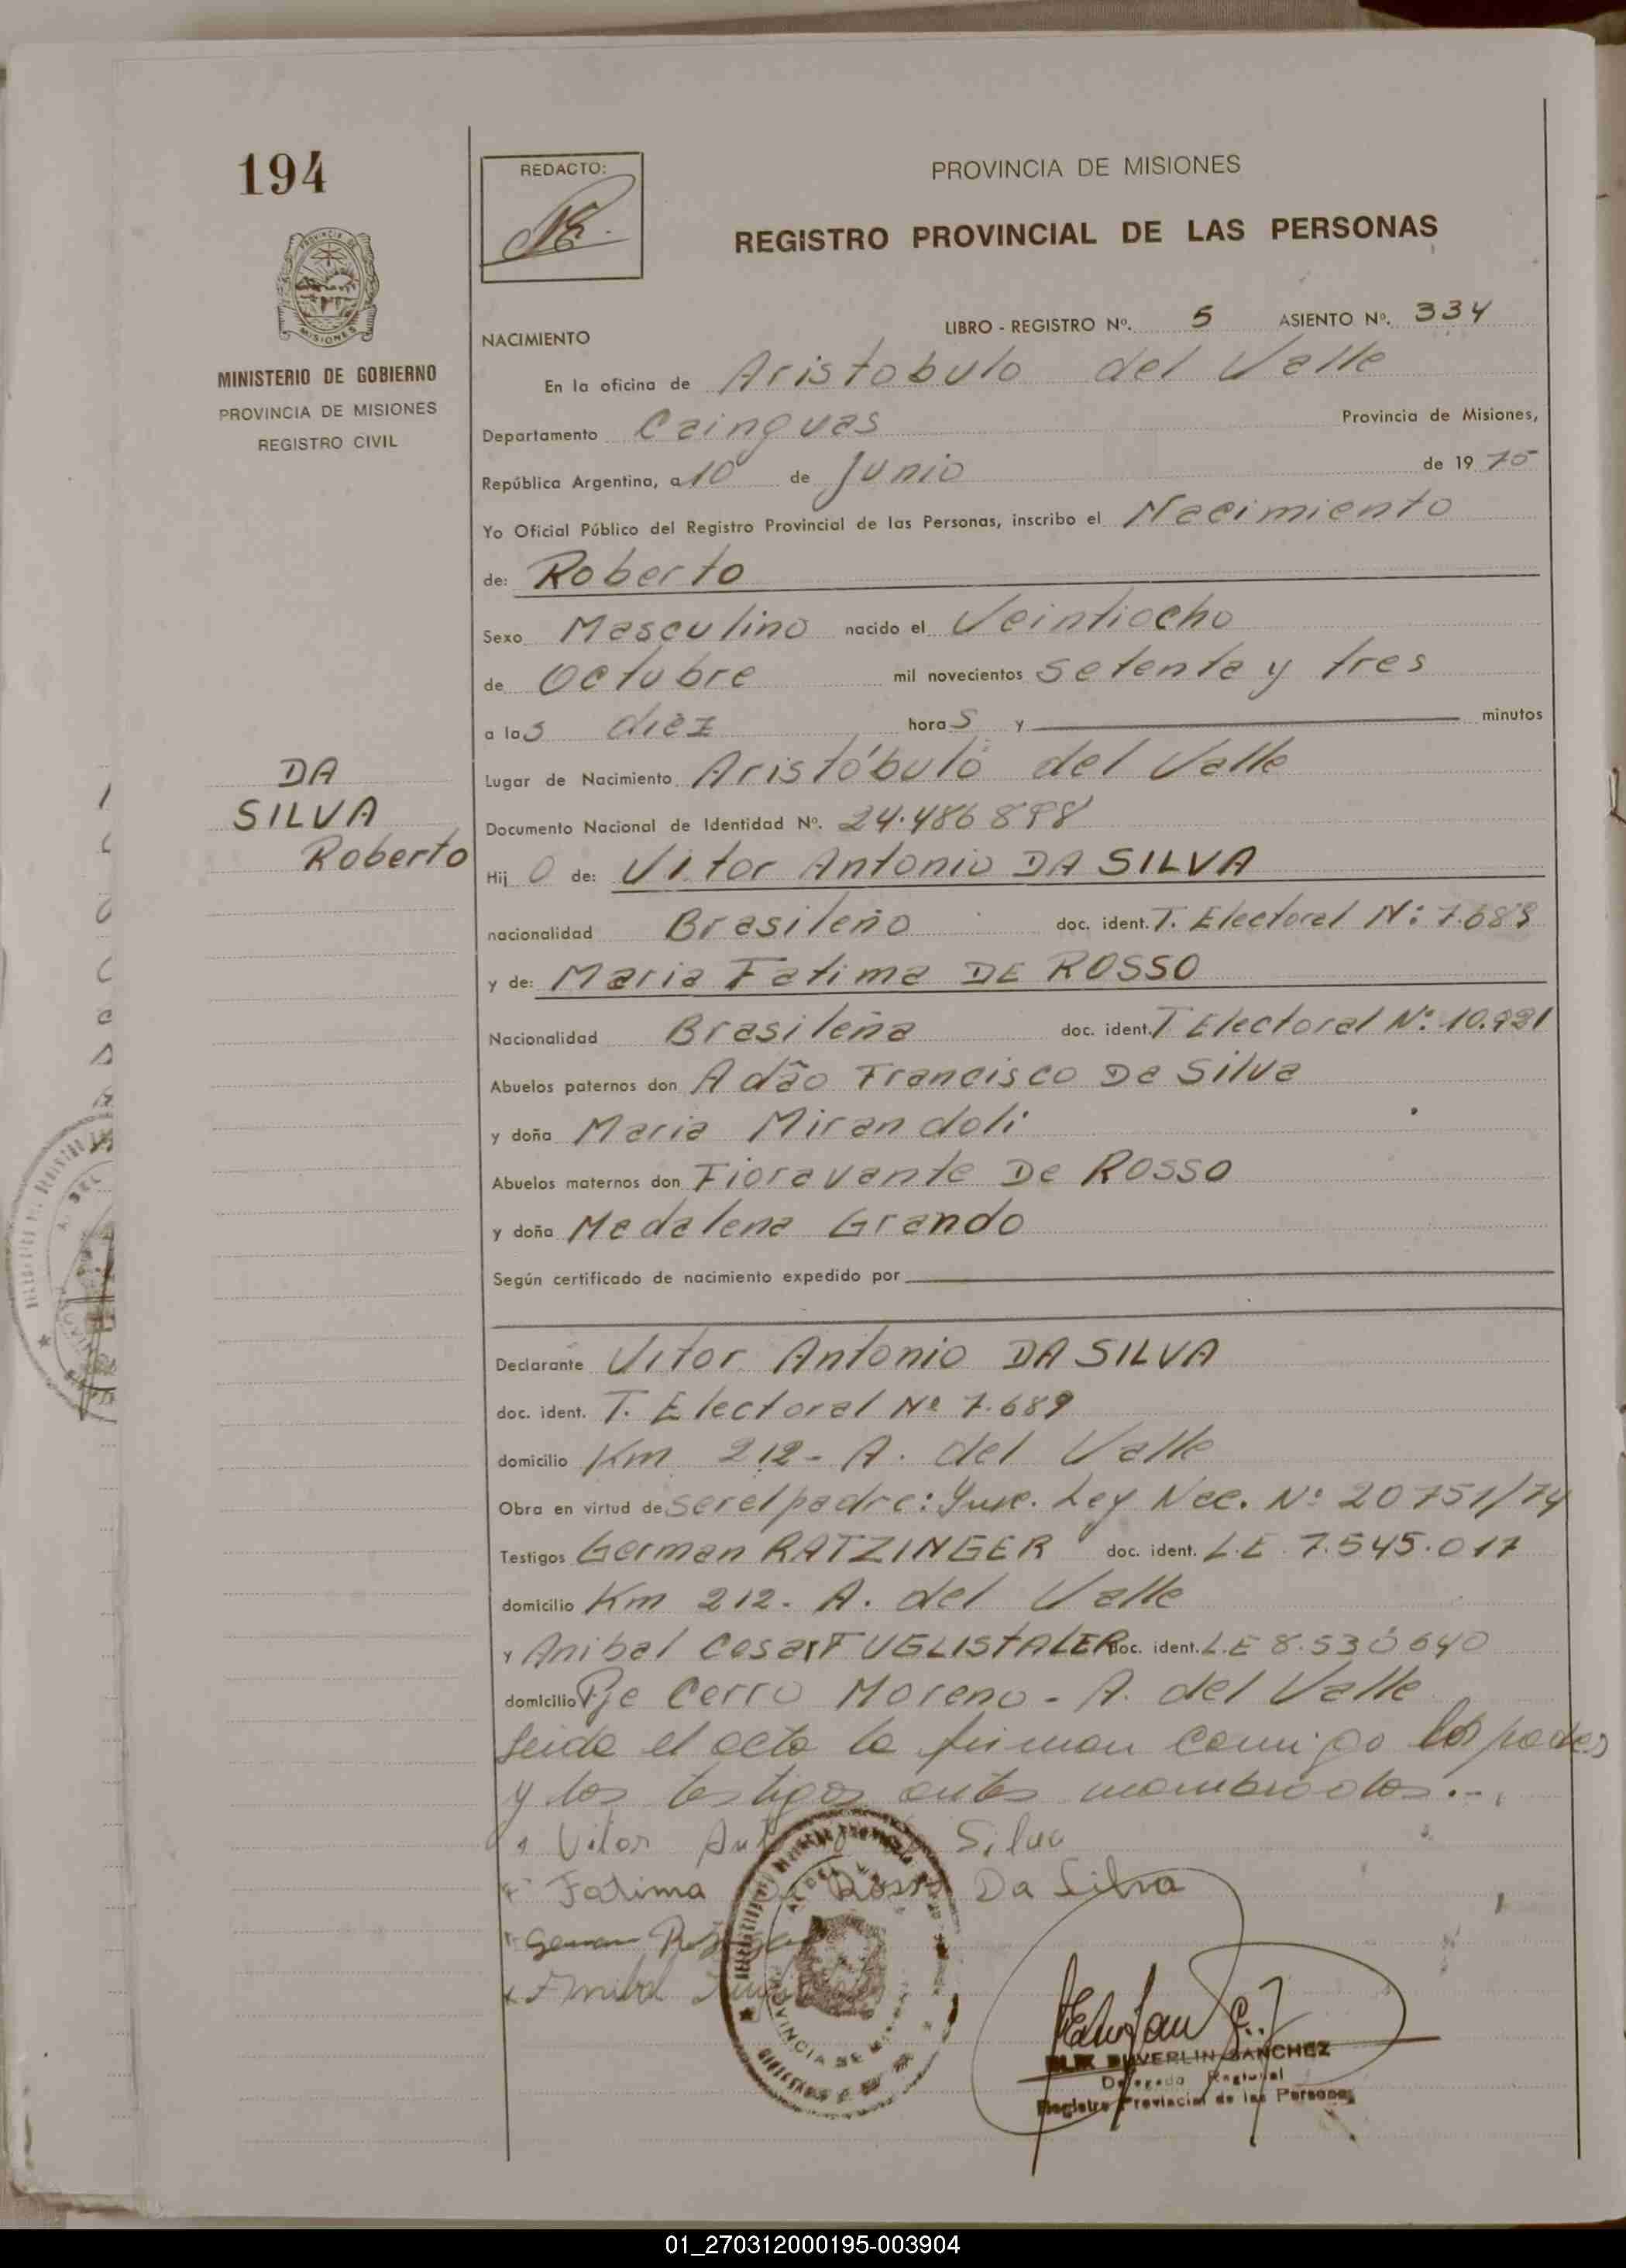 194
REDACTO:
PROVINCIA DE MISIONES
REGISTRO PROVINCIAL DE LAS PERSONAS
MISIONES
MINISTERIO DE GOBIERNO
PROVINCIA DE MISIONES
REGISTRO CIVIL
LIBRO - REGISTRO Nº. 5 ASIENTO Nº. 334
NACIMIENTO
En la oficina de Aristobulo del Valle
Departamento Cainguas Provincia de Misiones,
República Argentina, a 10 de Junio de 1975
Yo Oficial Público del Registro Provincial de las Personas, inscribo el Nacimiento
de: Roberto
Sexo Masculino nacido el Veintiocho
de Octubre mil novecientos setenta y tres
a las diez horas y minutos
Lugar de Nacimiento Aristóbulo del Valle
DA
SILVA
Roberto
Documento Nacional de Identidad Nº. 24.486898
Hijo de: Vitor Antonio DA SILVA
nacionalidad Brasileño doc. ident. T. Electoral Nº 7.689
y de: Maria Fatima DE ROSSO
Nacionalidad Brasileña doc. ident. T Electoral Nº
Abuelos paternos don Adão Francisco Da Silva
y doña Maria Mirandoli
Abuelos maternos don Fioravante De Rosso
y doña Madalena Grando
Según certificado de nacimiento expedido por
Declarante Vitor Antonio DA SILVA
doc. ident. T. Electoral Nº 7.689
domicilio Km 212- A. del Valle
Obra en virtud de ser el padre: Ley Nac. Nº 20751/74
Testigos German RATZINGER doc. ident. L.E 7.545.017
domicilio Km 212. A. del Valle
y Anibal Cesar FUGLISTALER doc. ident. L.E 8.530640
domicilio Pje Cerro Moreno - A. del Valle
leida el acta la firman conmigo los padres
y los testigos antes nombrados.-
Vitor Silva
Fatima Rosso Da Silva
German
Anibal
DUVERLIN SANCHEZ
Delegado Regional
Registro Provincial de las Personas
01_270312000195-003904